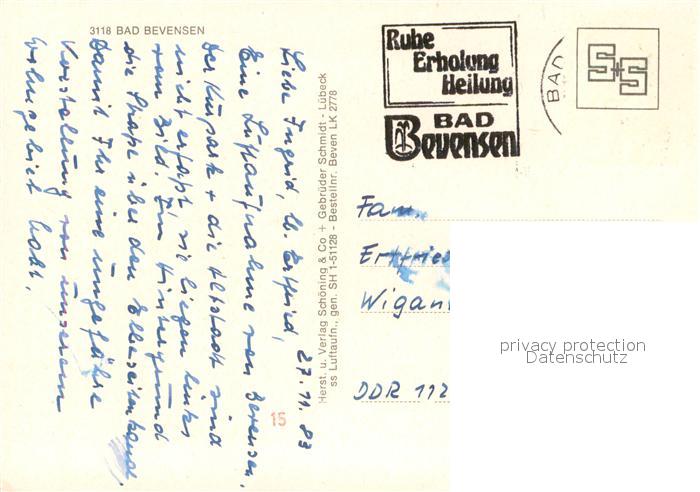 3118 BAD BEVENSEN
Ruhe
Erholung
Heilung
BAD
Bevensen
BAD
S+S
27.11.83
Liebe Ingrid, lb. Ertfried,
Eine Luftaufnahme von Bevensen.
Der Kurpark + die Altstadt sind
nicht erfaßt sie liegen links
vom Bild. Im Hintergrund
die Straße über den Elbeseitenkanal.
Damit Ihr eine ungefähre
Vorstellung von unserem
Wohngebiet habt.
Herst. u. Verlag Schöning & Co + Gebrüder Schmidt - Lübeck
ss Luftaufn., gen. SH 1-51128 - Bestellnr. Beven LK 2778
15
Fam.
Ertfried
Wigan
DDR 112
privacy protection
Datenschutz